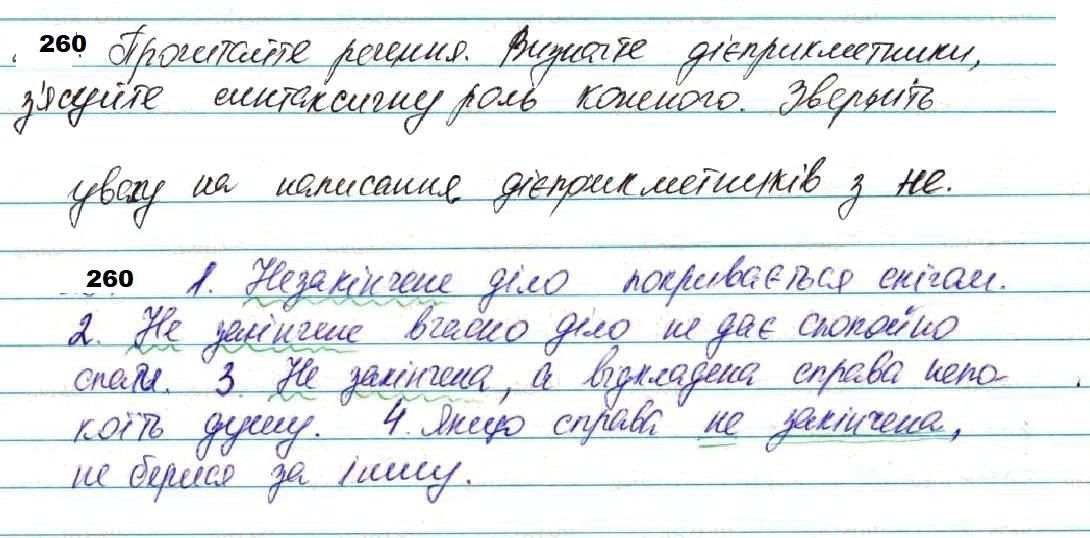 260. Прочитайте речення. Визначте дієприкметники,
з'ясуйте синтаксичну роль кожного. Зверніть
увагу на написання дієприкметників з не.
260 1. Незакінчене діло покривається снігом.
2. Не закінчене вчасно діло не дає спокойно
спати. 3. Не закінчена, а відкладена справа непо-
коїть душу. 4. Якщо справа не закінчена,
не берися за іншу.